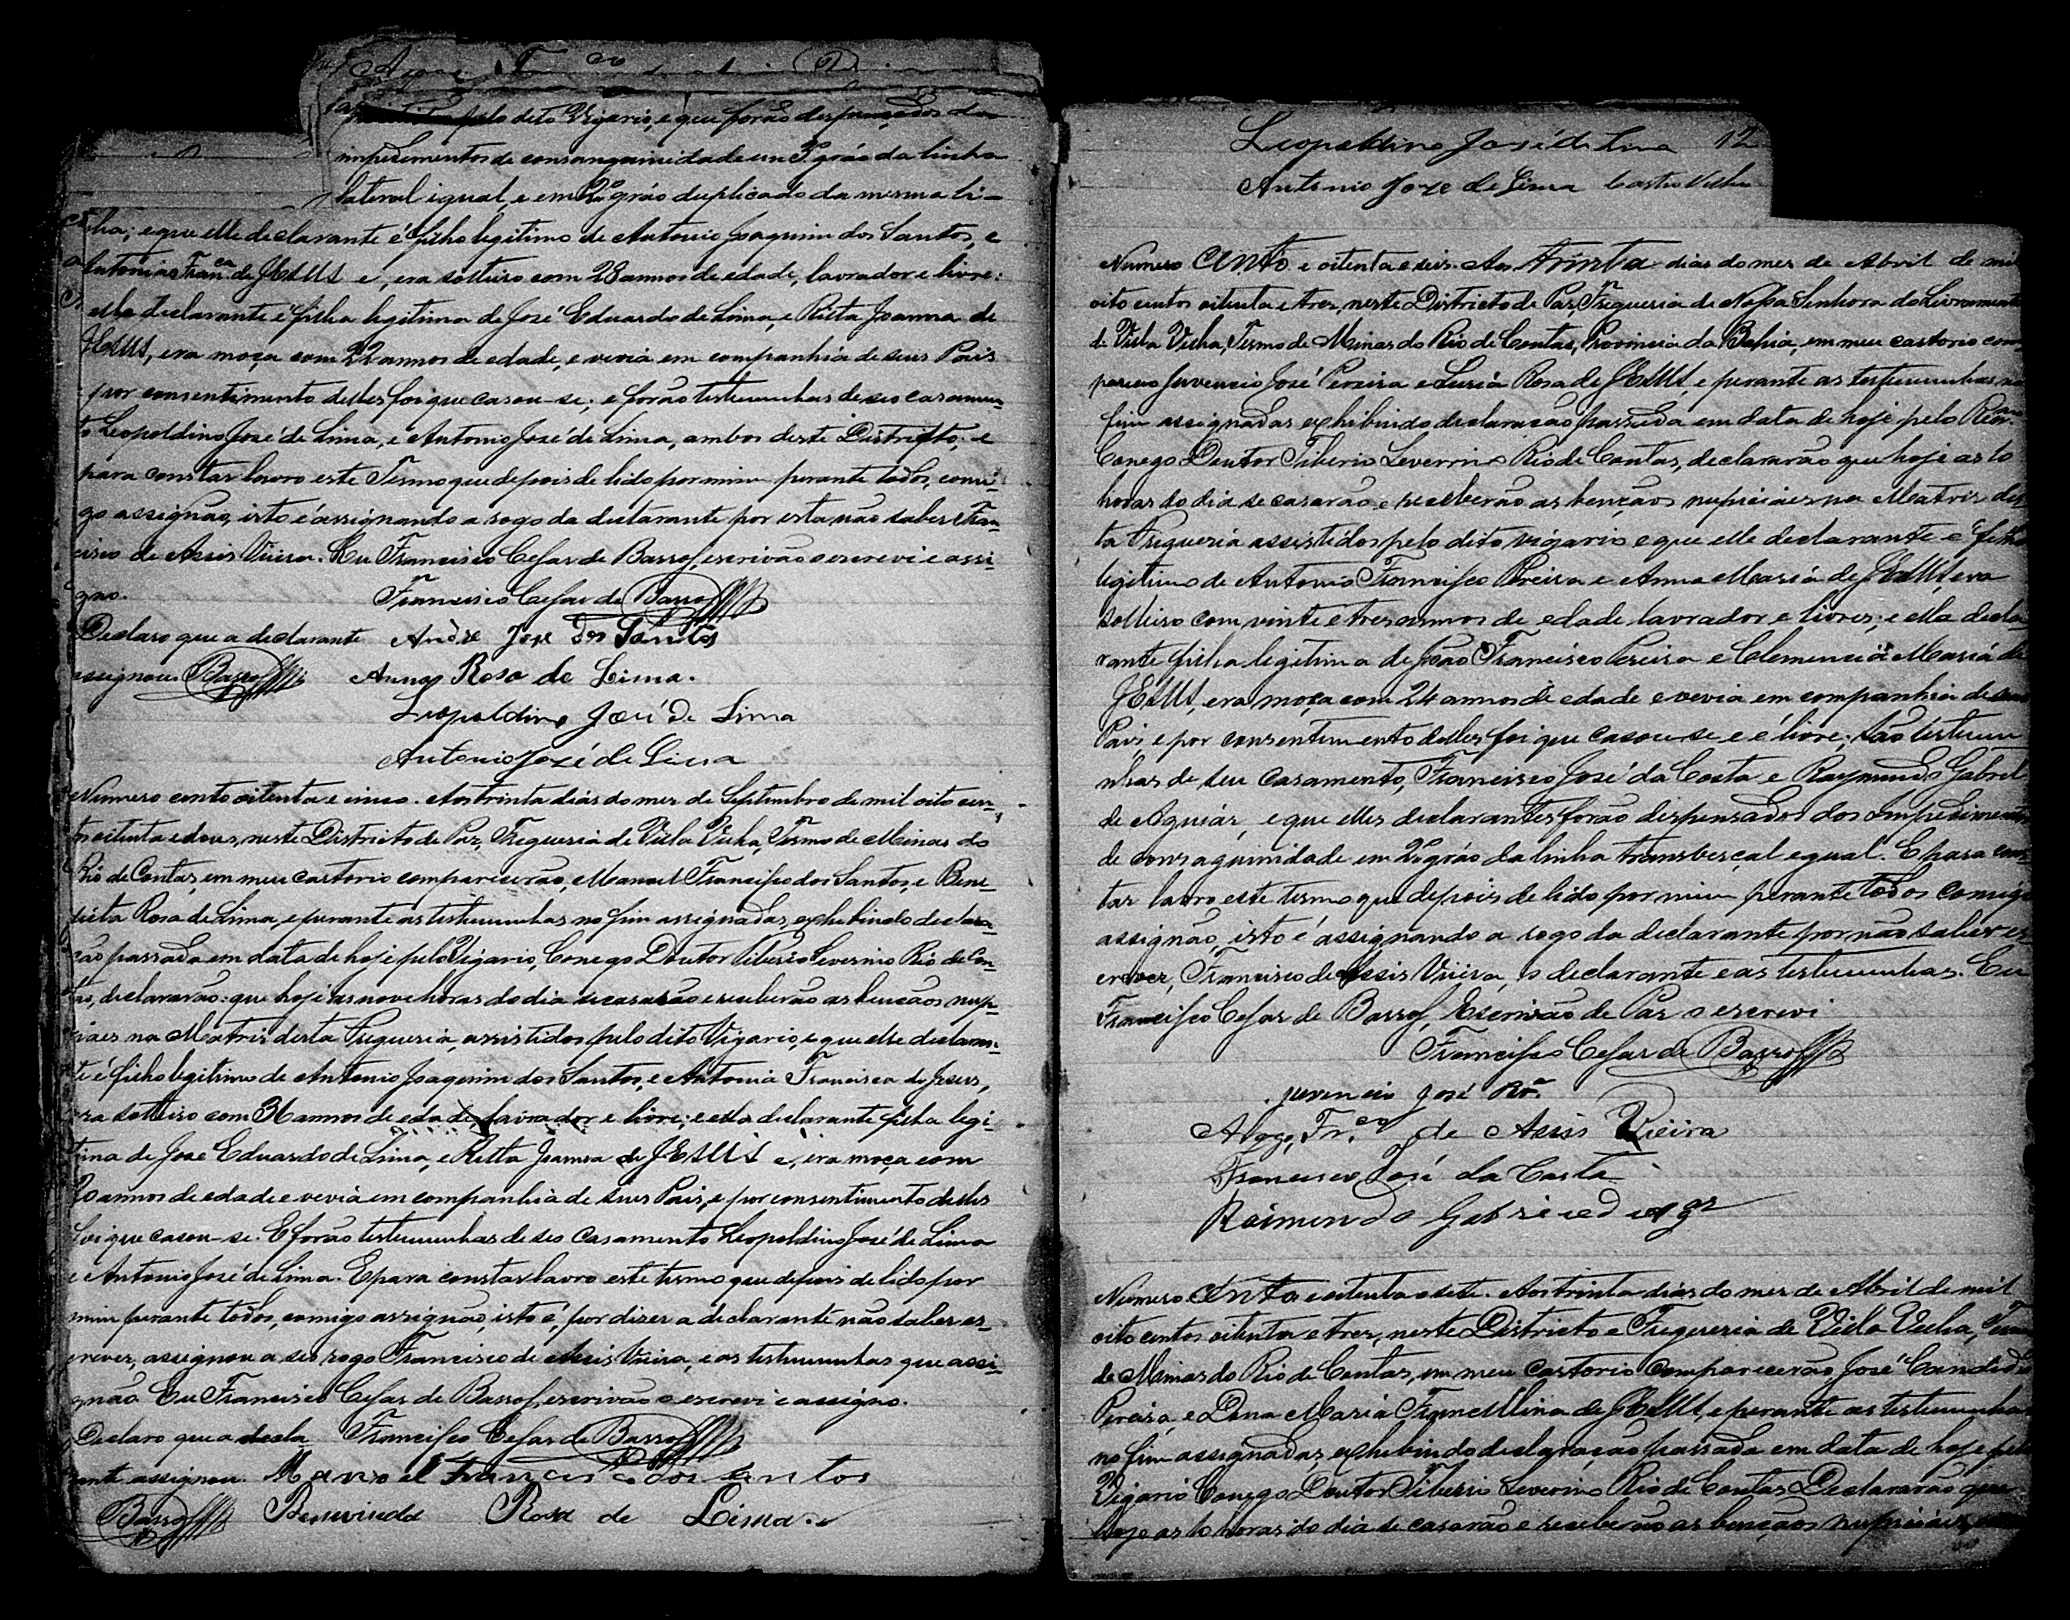 dito Vigario, e que forão dispensados dos
impedimentos de consanguinidade em 3º gráo da linha
lateral igual, e em 2º gráo duplicado da mesma li-
nha; e que elle declarante é filho legitimo de Antonio Joaquim dos Santos, e
Antonia Fran.ca de Jesus e, era solteiro com 28 annos de edade, lavrador e livre:
ella declarante é filha legitima de José Eduardo de Lima, e Ritta Joanna de
Jesus, era moça com 22 annos de edade, e vevia em companhia de seus Pais
e por consentimento delles foi que casou-se; e forão testemunhas de seo casamen-
to Leopoldino José de Lima, e Antonio José de Lima, ambos deste Districto; e
para constar lavro este Termo que depois de lido por mim perante todos, comi-
go assignão, isto é assignando a rogo da declarante por esta não saber Fran-
cisco de Assis Vieira. Eu Francisco Cesar de Barros, escrivão o escrevi e assi-
gno.
Francisco Cesar de Barros
Declaro que a declarante
André Jose dos Santos
assignou. Barros
Anna Rosa de Lima.
Leopoldino José de Lima
Antonio José de Lima
Numero cento oitenta e cinco. Aos trinta dias do mes de Septembro de mil oito cen-
tos oitenta e dous, neste Districto de Paz, Freguesia de Villa Velha, Termo de Minas do
Rio de Contas, em meu cartorio comparecerão, Manoel Francisco dos Santos, e Bene-
Rosa de Lima, e perante as testemunhas no fim assignadas, exhibindo declara-
ção passada em data de hoje pelo Vigario, Conego Doutor Tiberio Severino Rio de Con-
tas, declararão: que hoje as nove horas do dia se casarão e receberão as bençãos nup-
ciaes na Matris desta Freguesia, assistidos pelo dito Vigario, e que elle declaran-
te é filho legitimo de Antonio Joaquim dos Santos, e Antonia Francisca de Jesus,
era solteiro com 36 annos de edade, lavrador e livre; e ella declarante filha legi-
tima de José Eduardo de Lima, e Ritta Joanna de Jesus e, era moça com
20 annos de edade e vevia em companhia de seus Pais, e por consentimento delles
foi que casou-se. E forão testemunhas de seo casamento Leopoldino José de Lima
e Antonio José de Lima. E para constar lavro este termo que depois de lido por
mim perante todos, comigo assignão, isto é, por dizer a declarante não saber es-
crever, assignou a seo rogo Francisco de Assis Vieira, e as testemunhas que assi-
gnão. Eu Francisco Cesar de Barros, escrivão o escrevi e assigno.
Declaro que a decla
Francisco Cesar de Barros
rante assignou. Manoel Francisco dos santos
Barros Benvinda Rosa de Lima.
Leopoldino José de Lima 12
Antonio Joze de Lima
Numero cento e oitenta e seis. Aos trinta dias do mes de Abril de mil
oito centos oitenta e tres, neste Districto de Paz, Freguesia de Nossa Senhora do Livramento
de Villa Velha, Termo de Minas do Rio de Contas, Provincia da Bahia, em meu cartorio com-
pareceo Juvencio José Pereira e Lusia Rosa de Jesus, e perante as testemunhas no
fim assignadas exhibindo declaração passada em data de hoje pelo Revm.
Conego Doutor Tiberio Severino Rio de Contas, declararão que hoje as 10
horas do dia se casarão e receberão as bençãos nupciaes na Matris des-
ta Freguesia assistidos pelo dito vigario e que elle declarante é filho
legitimo de Antonio Francisco Pereira e Anna Maria de Jesus, era
solteiro com vinte e tres annos de edade lavrador e livres; e ella decla-
rante filha legitima de João Francisco Pereira e Clemencia Maria de
Jesus, era moça com 24 annos de edade e vevia em companhia de seus
Pais, e por consentimento delles foi que casou-se e é livre; são testemu-
nhas de seu casamento, Francisco José da Costa e Raymundo Gabriel
de Aguiár, e que elles declarantes forão dispensados dos impedimentos
de consaguinidade em 2º gráo da linha transverçal egual. E para cons-
tar lavro este termo que depois de lido por mim perante todos comigo
assignão, isto é assignando a rogo da declarante por não saber es-
crever, Francisco de Assis Vieira, o declarante e as testemunhas. Eu
Francisco Cesar de Barros, Escrivão de Paz o escrevi
Francisco Cesar de Barros
Juvencio José Rõ.
A rogo, Fr.co de Assis Vieira
Francisco José da Costa
Raimundo Gabriel d
Numero cento e oitenta e sete. Aos trinta dias do mes de Abril de mil
oito centos oitenta e tres, neste Districto e Freguesia de Villa Velha, Termo
de Minas do Rio de Contas, em meu cartorio comparecerão José Candido
Pereira, e Dona Maria Francellina de Jesus, e perante as testemunhas
no fim assignadas exhibindo declaração passada em data de hoje pelo
Vigario Conego Doutor Tiberio Severino Rio de Contas Declararão que
hoje as 10 horas do dia se casarão e receberão as bençãos nupciaes,